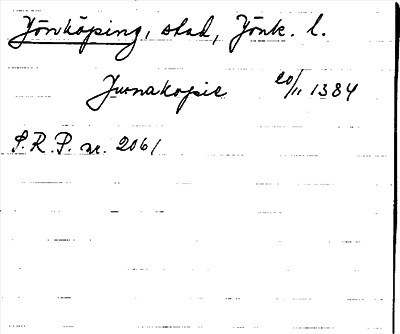 Jönköping, stad, Jönk. l.
Junakopie 20/11 1384
S.R.P. nr. 2061